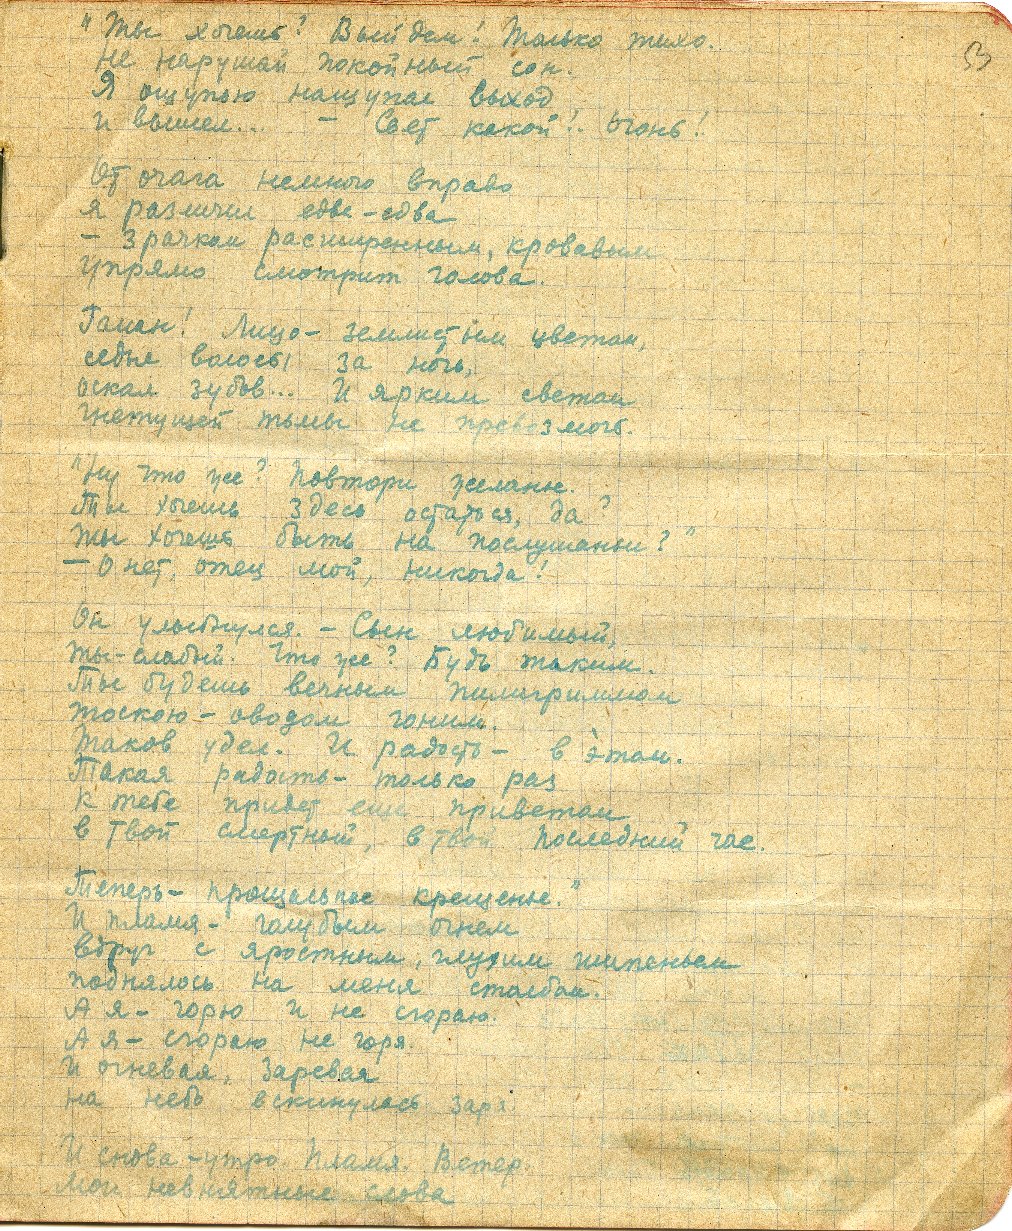 53
"Ты хочешь? Выйдем! Только тихо.
Не нарушай покойный сон.
Я ощупью нащупал выход
и вышел... – Свет какой! Огонь!
От очага немного вправо
я различил едва-едва
– зрачком расширенным, кровавым
упрямо смотрит голова.
Гаман! Лицо – землистым цветом,
седые волосы за ночь,
оскал зубов... И ярким светом
гнетущей тьмы не превозмочь.
"Ну что же? Повтори желанье.
Ты хочешь здесь остаться, да?
Ты хочешь быть на послушаньи?"
– О нет, отец мой, никогда!
Он улыбнулся. – Сын любимый,
ты – слабый. Что же? Будь таким.
Ты будешь вечным пилигримом
тоскою – оводом гоним.
Таков удел. И радость – в этом.
Такая радость – только раз
к тебе придет еще приветом
в твой смертный, в твой последний час.
Теперь – прощальное крещенье."
И пламя – голубым огнем
вдруг с яростным, глухим шипеньем
поднялось на меня столбом.
А я – горю и не сгораю.
А я – сгораю не горя.
И огневая, заревая
на небо вскинулась заря
И снова – утро. Пламя. Ветер.
Мои невнятные слова